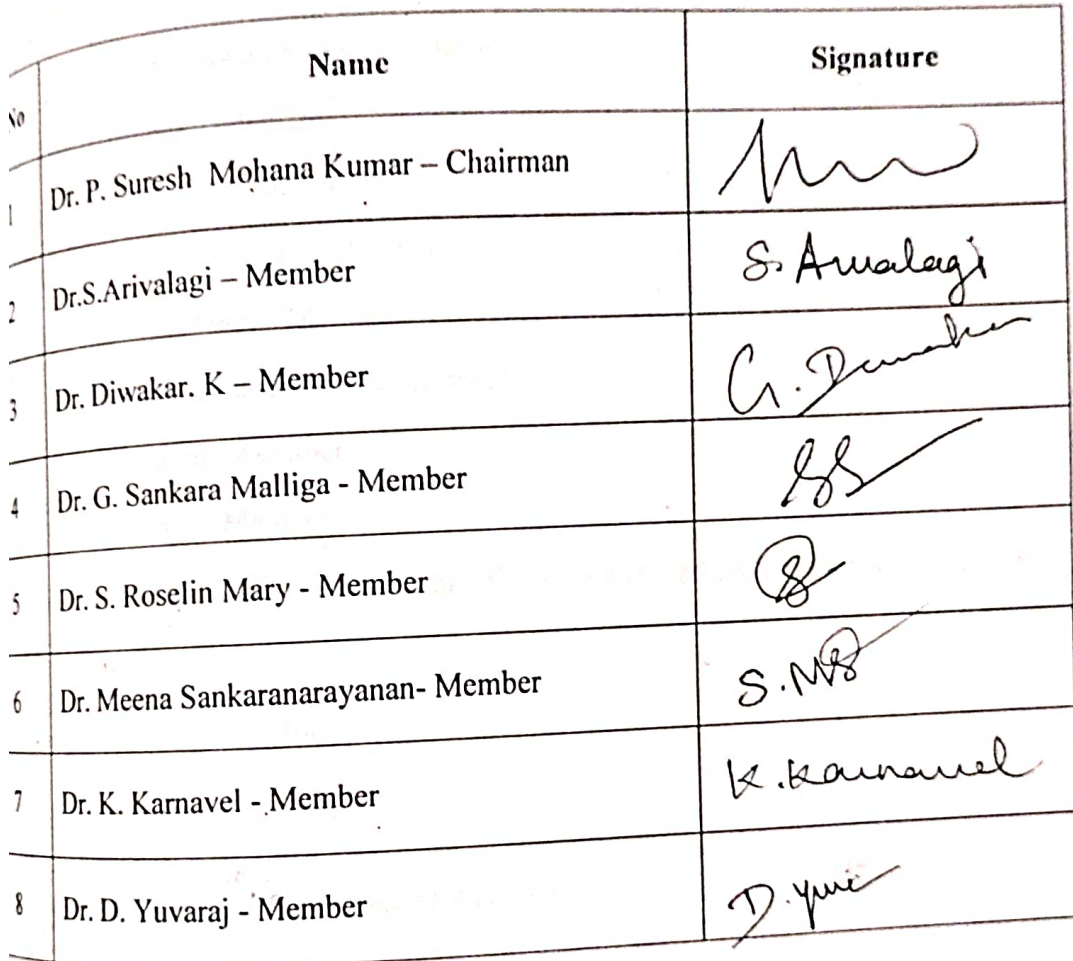 No Name Signature
1 Dr. P. Suresh Mohana Kumar – Chairman
2 Dr.S.Arivalagi – Member S. Arivalagi
3 Dr. Diwakar. K – Member G.
4 Dr. G. Sankara Malliga - Member
5 Dr. S. Roselin Mary - Member
6 Dr. Meena Sankaranarayanan- Member S.
7 Dr. K. Karnavel - Member K. Karnavel
8 Dr. D. Yuvaraj - Member D.